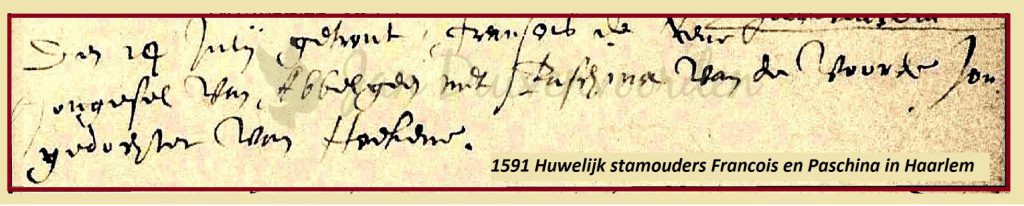 Den 14 Julij getrout, fransois de
Jongesel van Abbelgen met Paschina van de Voorde Jon
gedochter van
1591 Huwelijk stamouders Francois en Paschina in Haarlem